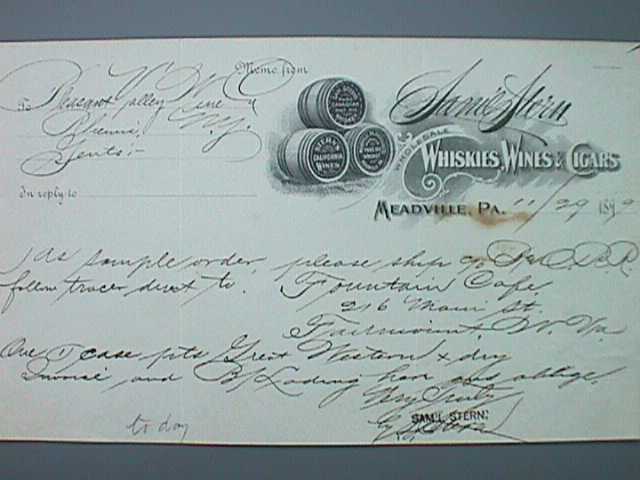 Memo. from
To Pleasant Valley Wine Co
Rheims, N.Y.
Gents:-
In reply to
Sam'l Stern
WHOLESALE
WHISKIES, WINES & CIGARS
CALIFORNIA
WINES
MEADVILLE, PA. 11/29 189
As sample order, please ship
follow tracer direct to. Fountain Cafe,
216 Main St.
Fairmount, W. Va
One (1) case pts Great Western x dry
Invoice and B/Lading here and oblige,
Very Truly
SAM'L STERN.
to day